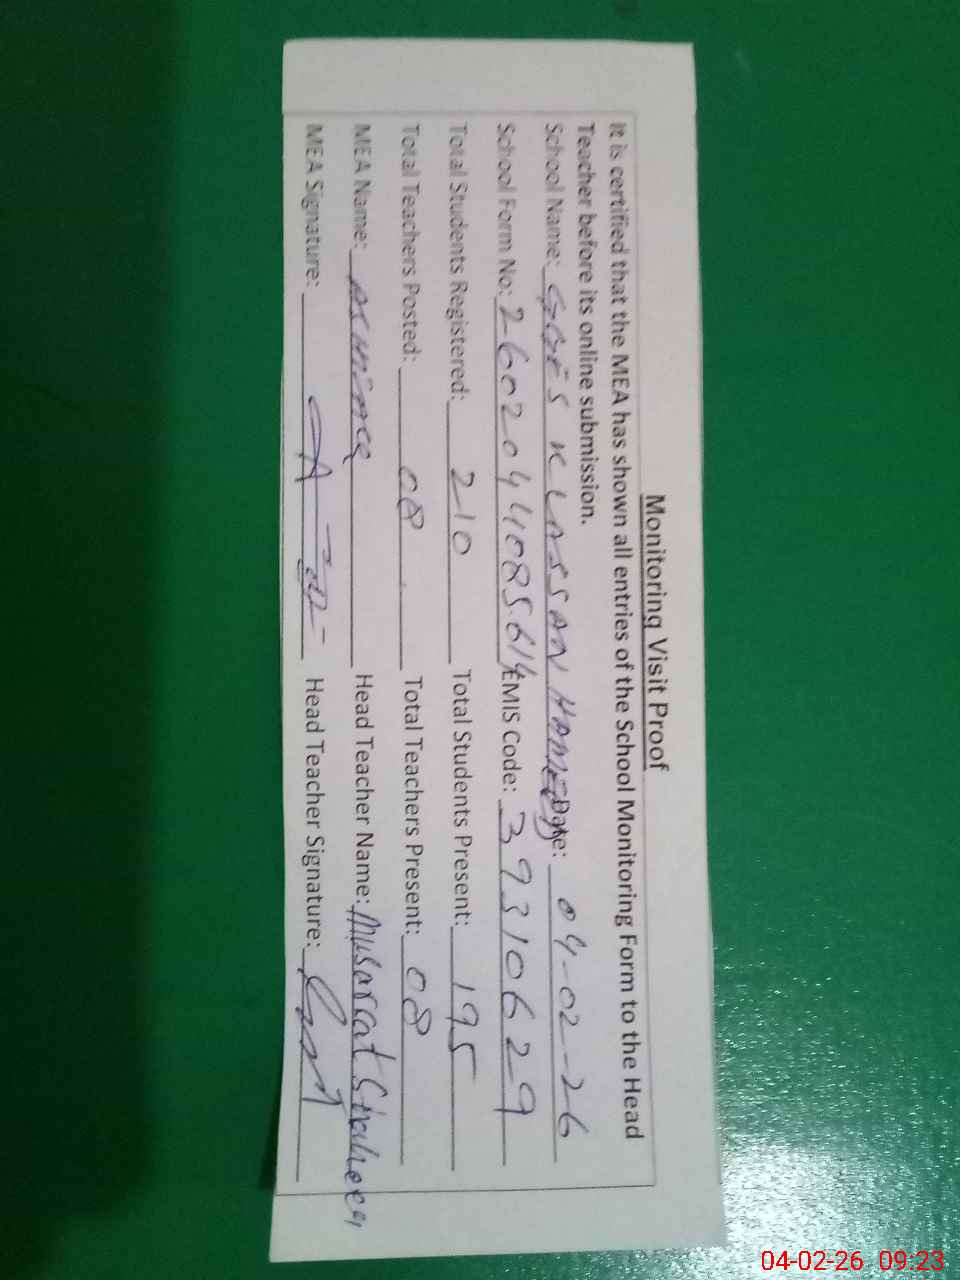 Monitoring Visit Proof
It is certified that the MEA has shown all entries of the School Monitoring Form to the Head
Teacher before its online submission.
School Name: GGES KLASSAN HAMEED Date: 04-02-26
School Form No: EMIS Code: 39310629
Total Students Registered: 210 Total Students Present: 195
Total Teachers Posted: 08 Total Teachers Present: 08
MEA Name: Head Teacher Name: Musarrat Shaheen
MEA Signature: Head Teacher Signature:
04-02-26 09:23